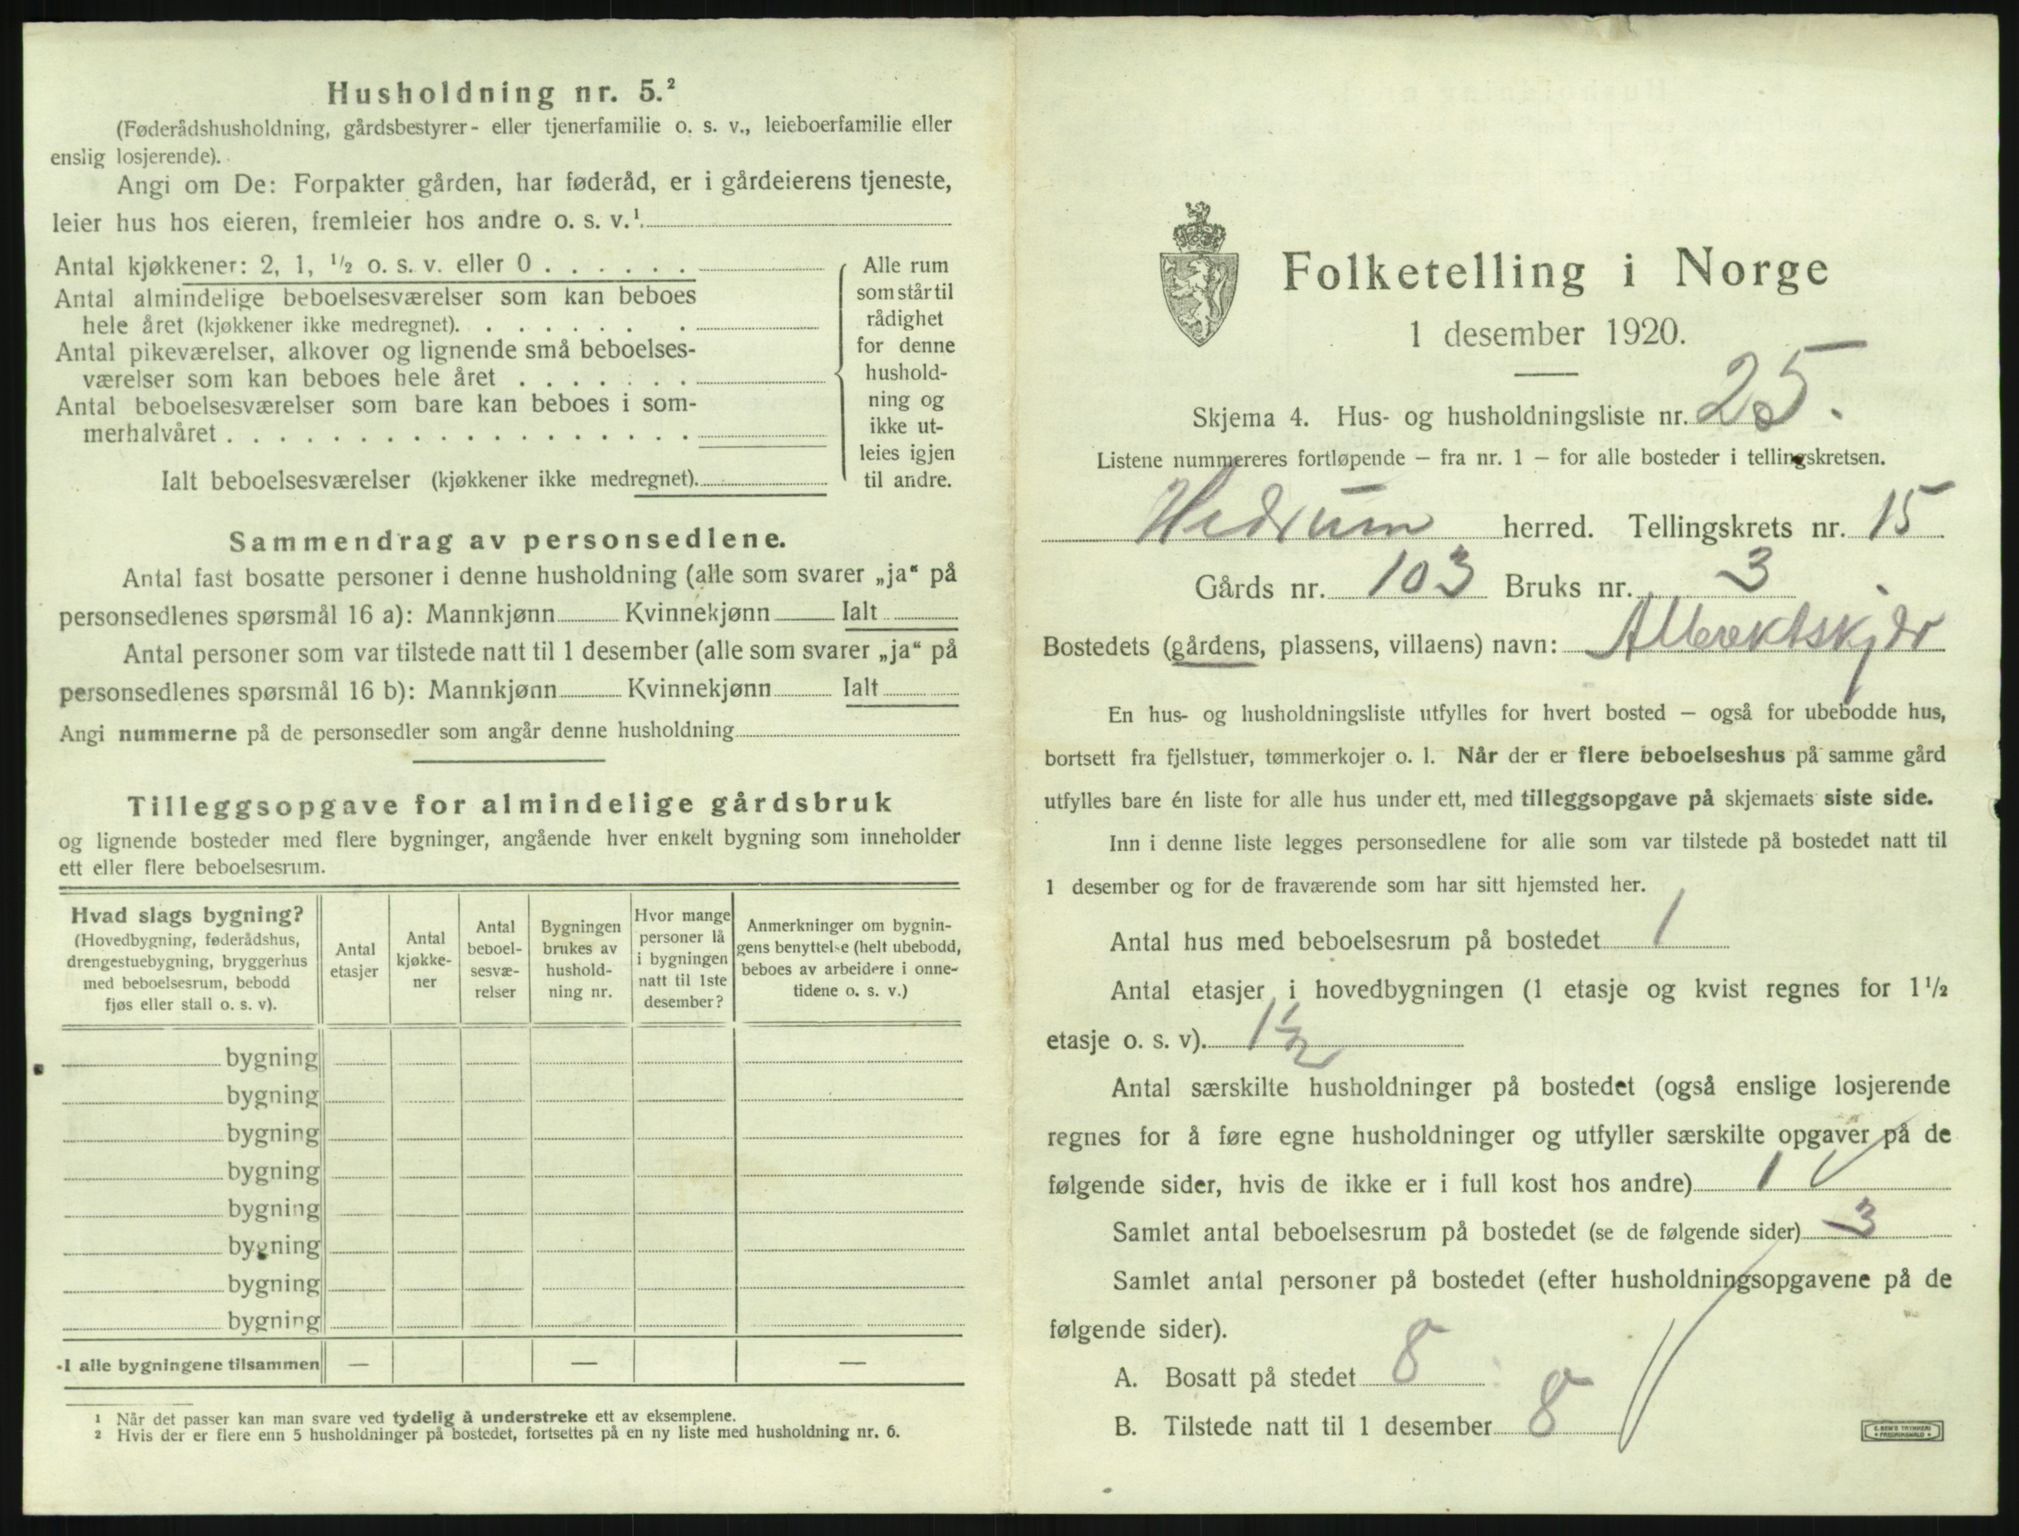 Husholdning nr. 5.²
(Føderådshusholdning, gårdsbestyrer- eller tjenerfamilie o. s. v., leieboerfamilie eller
enslig losjerende).
Angi om De: Forpakter gården, har føderåd, er i gårdeierens tjeneste,
leier hus hos eieren, fremleier hos andre o. s. v.¹
Antal kjøkkener: 2, 1, ½ o. s. v. eller 0 . . . . . .
Antal almindelige beboelsesværelser som kan beboes
hele året (kjøkkener ikke medregnet). . . . . . . .
Antal pikeværelser, alkover og lignende små beboelses-
værelser som kan beboes hele året . . . . . . .
Antal beboelsesværelser som bare kan beboes i som-
merhalvåret . . . . . . . . . . . . . . . . . .
Ialt beboelsesværelser (kjøkkener ikke medregnet).
Alle rum
som står til
rådighet
for denne
hushold-
ning og
ikke ut-
leies igjen
til andre.
Sammendrag av personsedlene.
Antal fast bosatte personer i denne husholdning (alle som svarer „ja“ på
personsedlenes spørsmål 16 a): Mannkjønn Kvinnekjønn Ialt
Antal personer som var tilstede natt til 1 desember (alle som svarer „ja“ på
personsedlenes spørsmål 16 b): Mannkjønn Kvinnekjønn Ialt
Angi nummerne på de personsedler som angår denne husholdning
Tilleggsopgave for almindelige gårdsbruk
og lignende bosteder med flere bygninger, angående hver enkelt bygning som inneholder
ett eller flere beboelsesrum.
Hvad slags bygning?
(Hovedbygning, føderådshus,
drengestuebygning, bryggerhus
med beboelsesrum, bebodd
fjøs eller stall o. s. v).
Antal
etasjer
Antal
kjøkke-
ner
Antal
beboel-
sesvæ-
relser
Bygningen
brukes av
hushold-
ning nr.
Hvor mange
personer lå
i bygningen
natt til 1ste
desember?
Anmerkninger om bygnin-
gens benyttelse (helt ubebodd,
beboes av arbeidere i onne-
tidene o. s. v.)
bygning
bygning
bygning
bygning
bygning
bygning
bygning
bygning
I alle bygningene tilsammen — — —
¹ Når det passer kan man svare ved tydelig å understreke ett av eksemplene.
² Hvis der er flere enn 5 husholdninger på bostedet, fortsettes på en ny liste med husholdning nr. 6.
Folketelling i Norge
1 desember 1920.
Skjema 4. Hus- og husholdningsliste nr. 25.
Listene nummereres fortløpende – fra nr. 1 – for alle bosteder i tellingskretsen.
Hedrum herred. Tellingskrets nr. 15
Gårds nr. 103 Bruks nr. 3
Bostedets (gårdens, plassens, villaens) navn:
En hus- og husholdningsliste utfylles for hvert bosted – også for ubebodde hus,
bortsett fra fjellstuer, tømmerkojer o. l. Når der er flere beboelseshus på samme gård
utfylles bare én liste for alle hus under ett, med tilleggsopgave på skjemaets siste side.
Inn i denne liste legges personsedlene for alle som var tilstede på bostedet natt til
1 desember og for de fraværende som har sitt hjemsted her.
Antal hus med beboelsesrum på bostedet 1
Antal etasjer i hovedbygningen (1 etasje og kvist regnes for 1½
etasje o. s. v). 1½
Antal særskilte husholdninger på bostedet (også enslige losjerende
regnes for å føre egne husholdninger og utfyller særskilte opgaver på de
følgende sider, hvis de ikke er i full kost hos andre) 1
Samlet antal beboelsesrum på bostedet (se de følgende sider) 3
Samlet antal personer på bostedet (efter husholdningsopgavene på de
følgende sider).
A. Bosatt på stedet 8
B. Tilstede natt til 1 desember 8